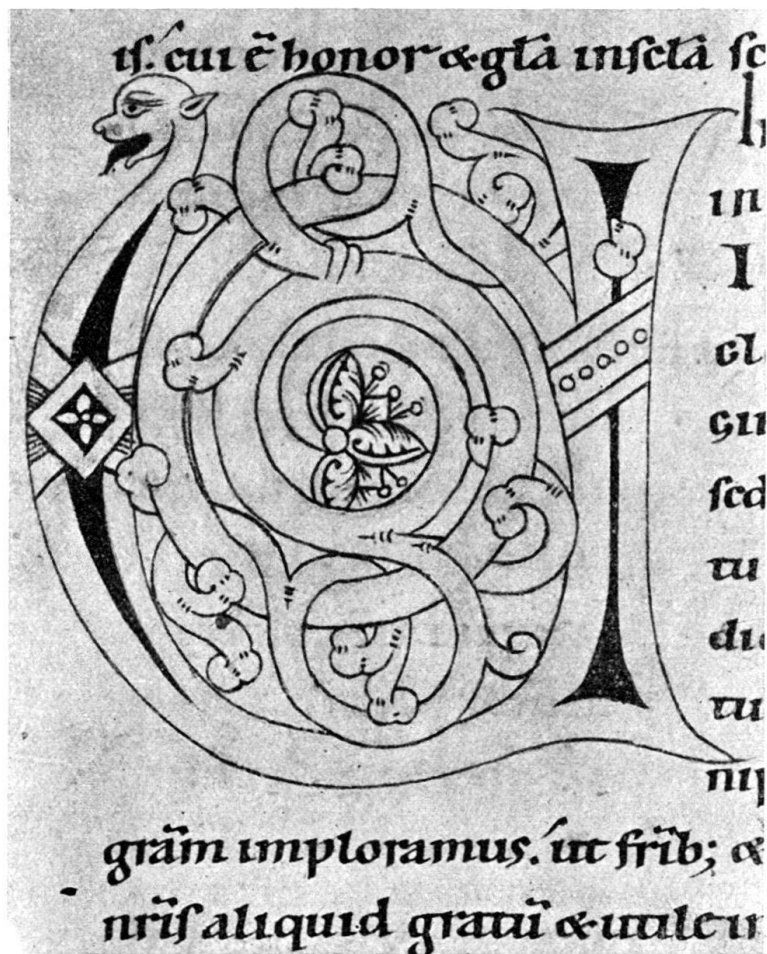 is. cui ē honor & gl̄a in sc̄la sc
in
I
cl
gin
sed
tu
di
tu
nip
grām imploramus. ut fr̄ib; &
nr̄is aliquid gratū & utile in